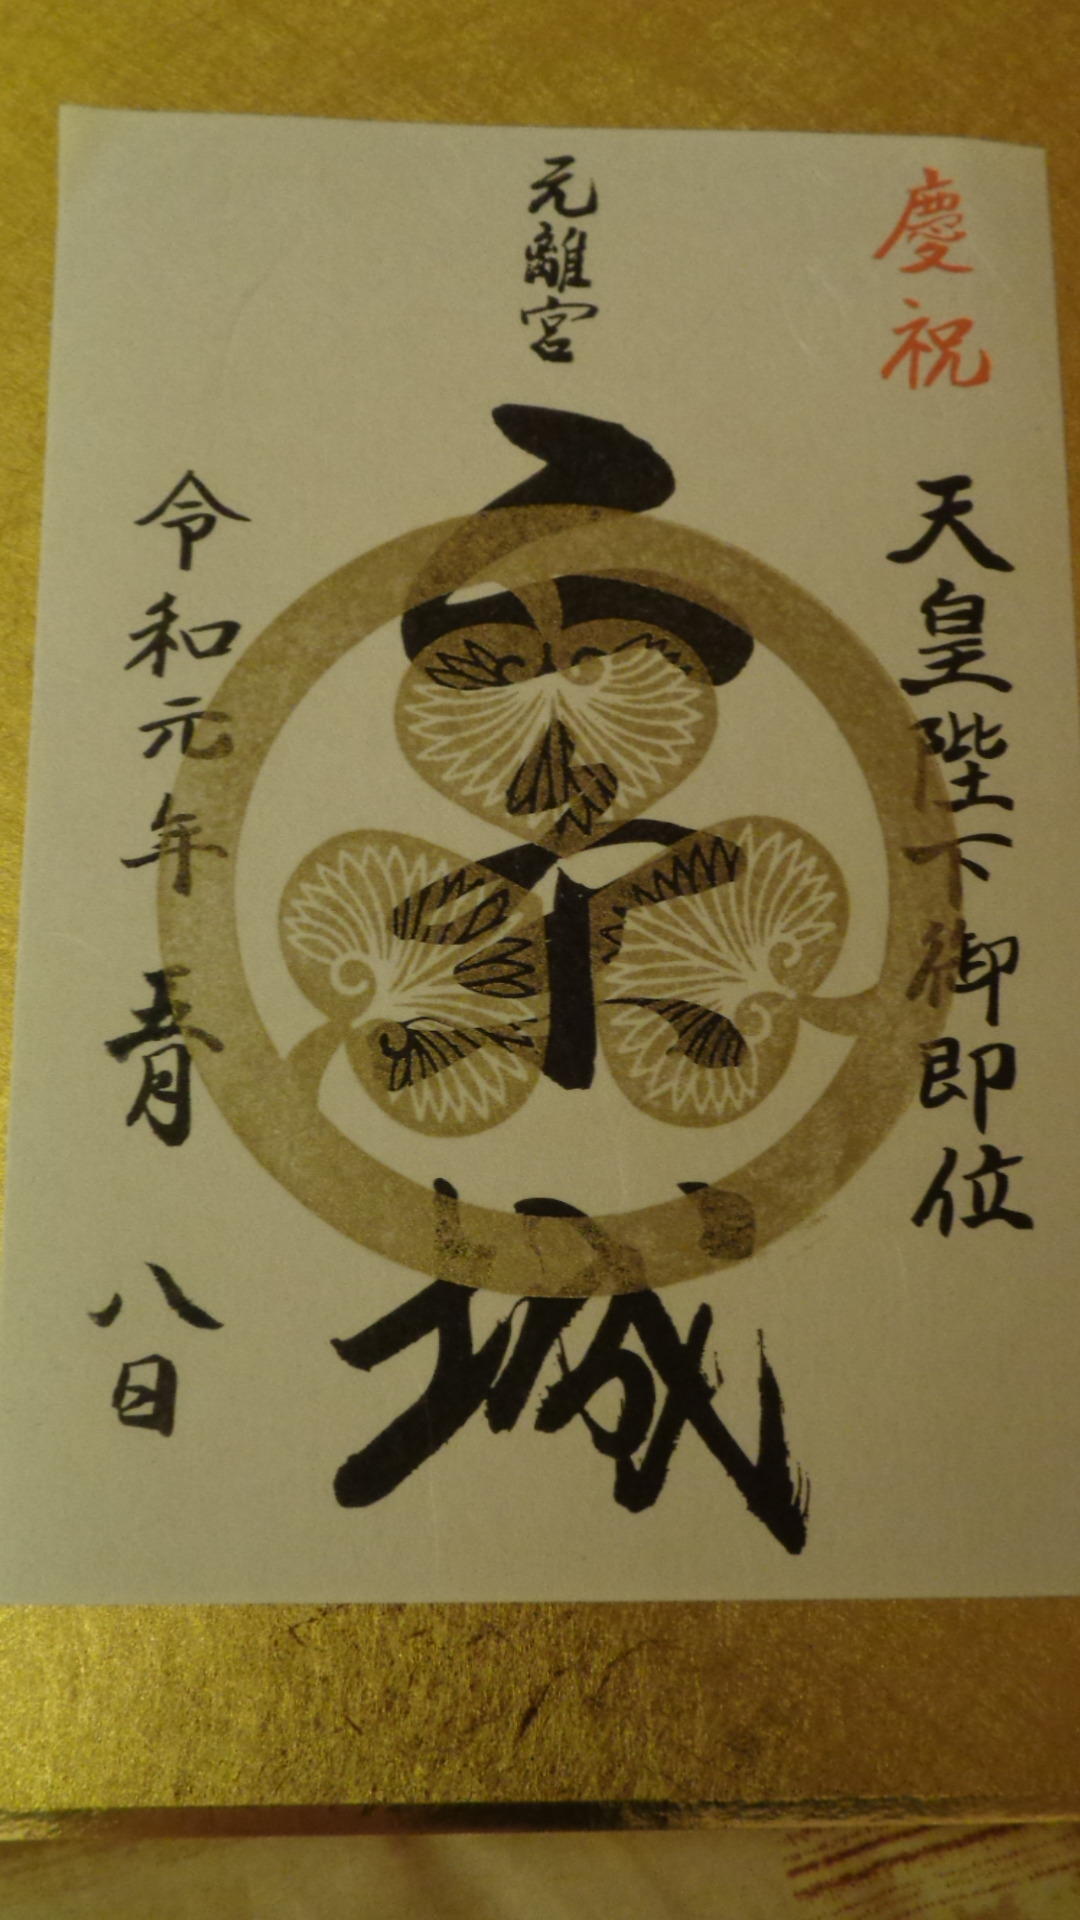 慶祝
天皇陛下御即位
元離宮
二条城
令和元年五月八日